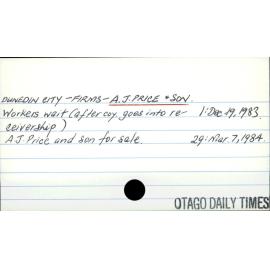 DUNEDIN CITY - FIRMS - A.J. PRICE & SON.
Workers wait (after coy. goes into re- 1: Dec 19, 1983
ceivership)
A.J. Price and son for sale. 29: Mar. 7, 1984.
OTAGO DAILY TIMES